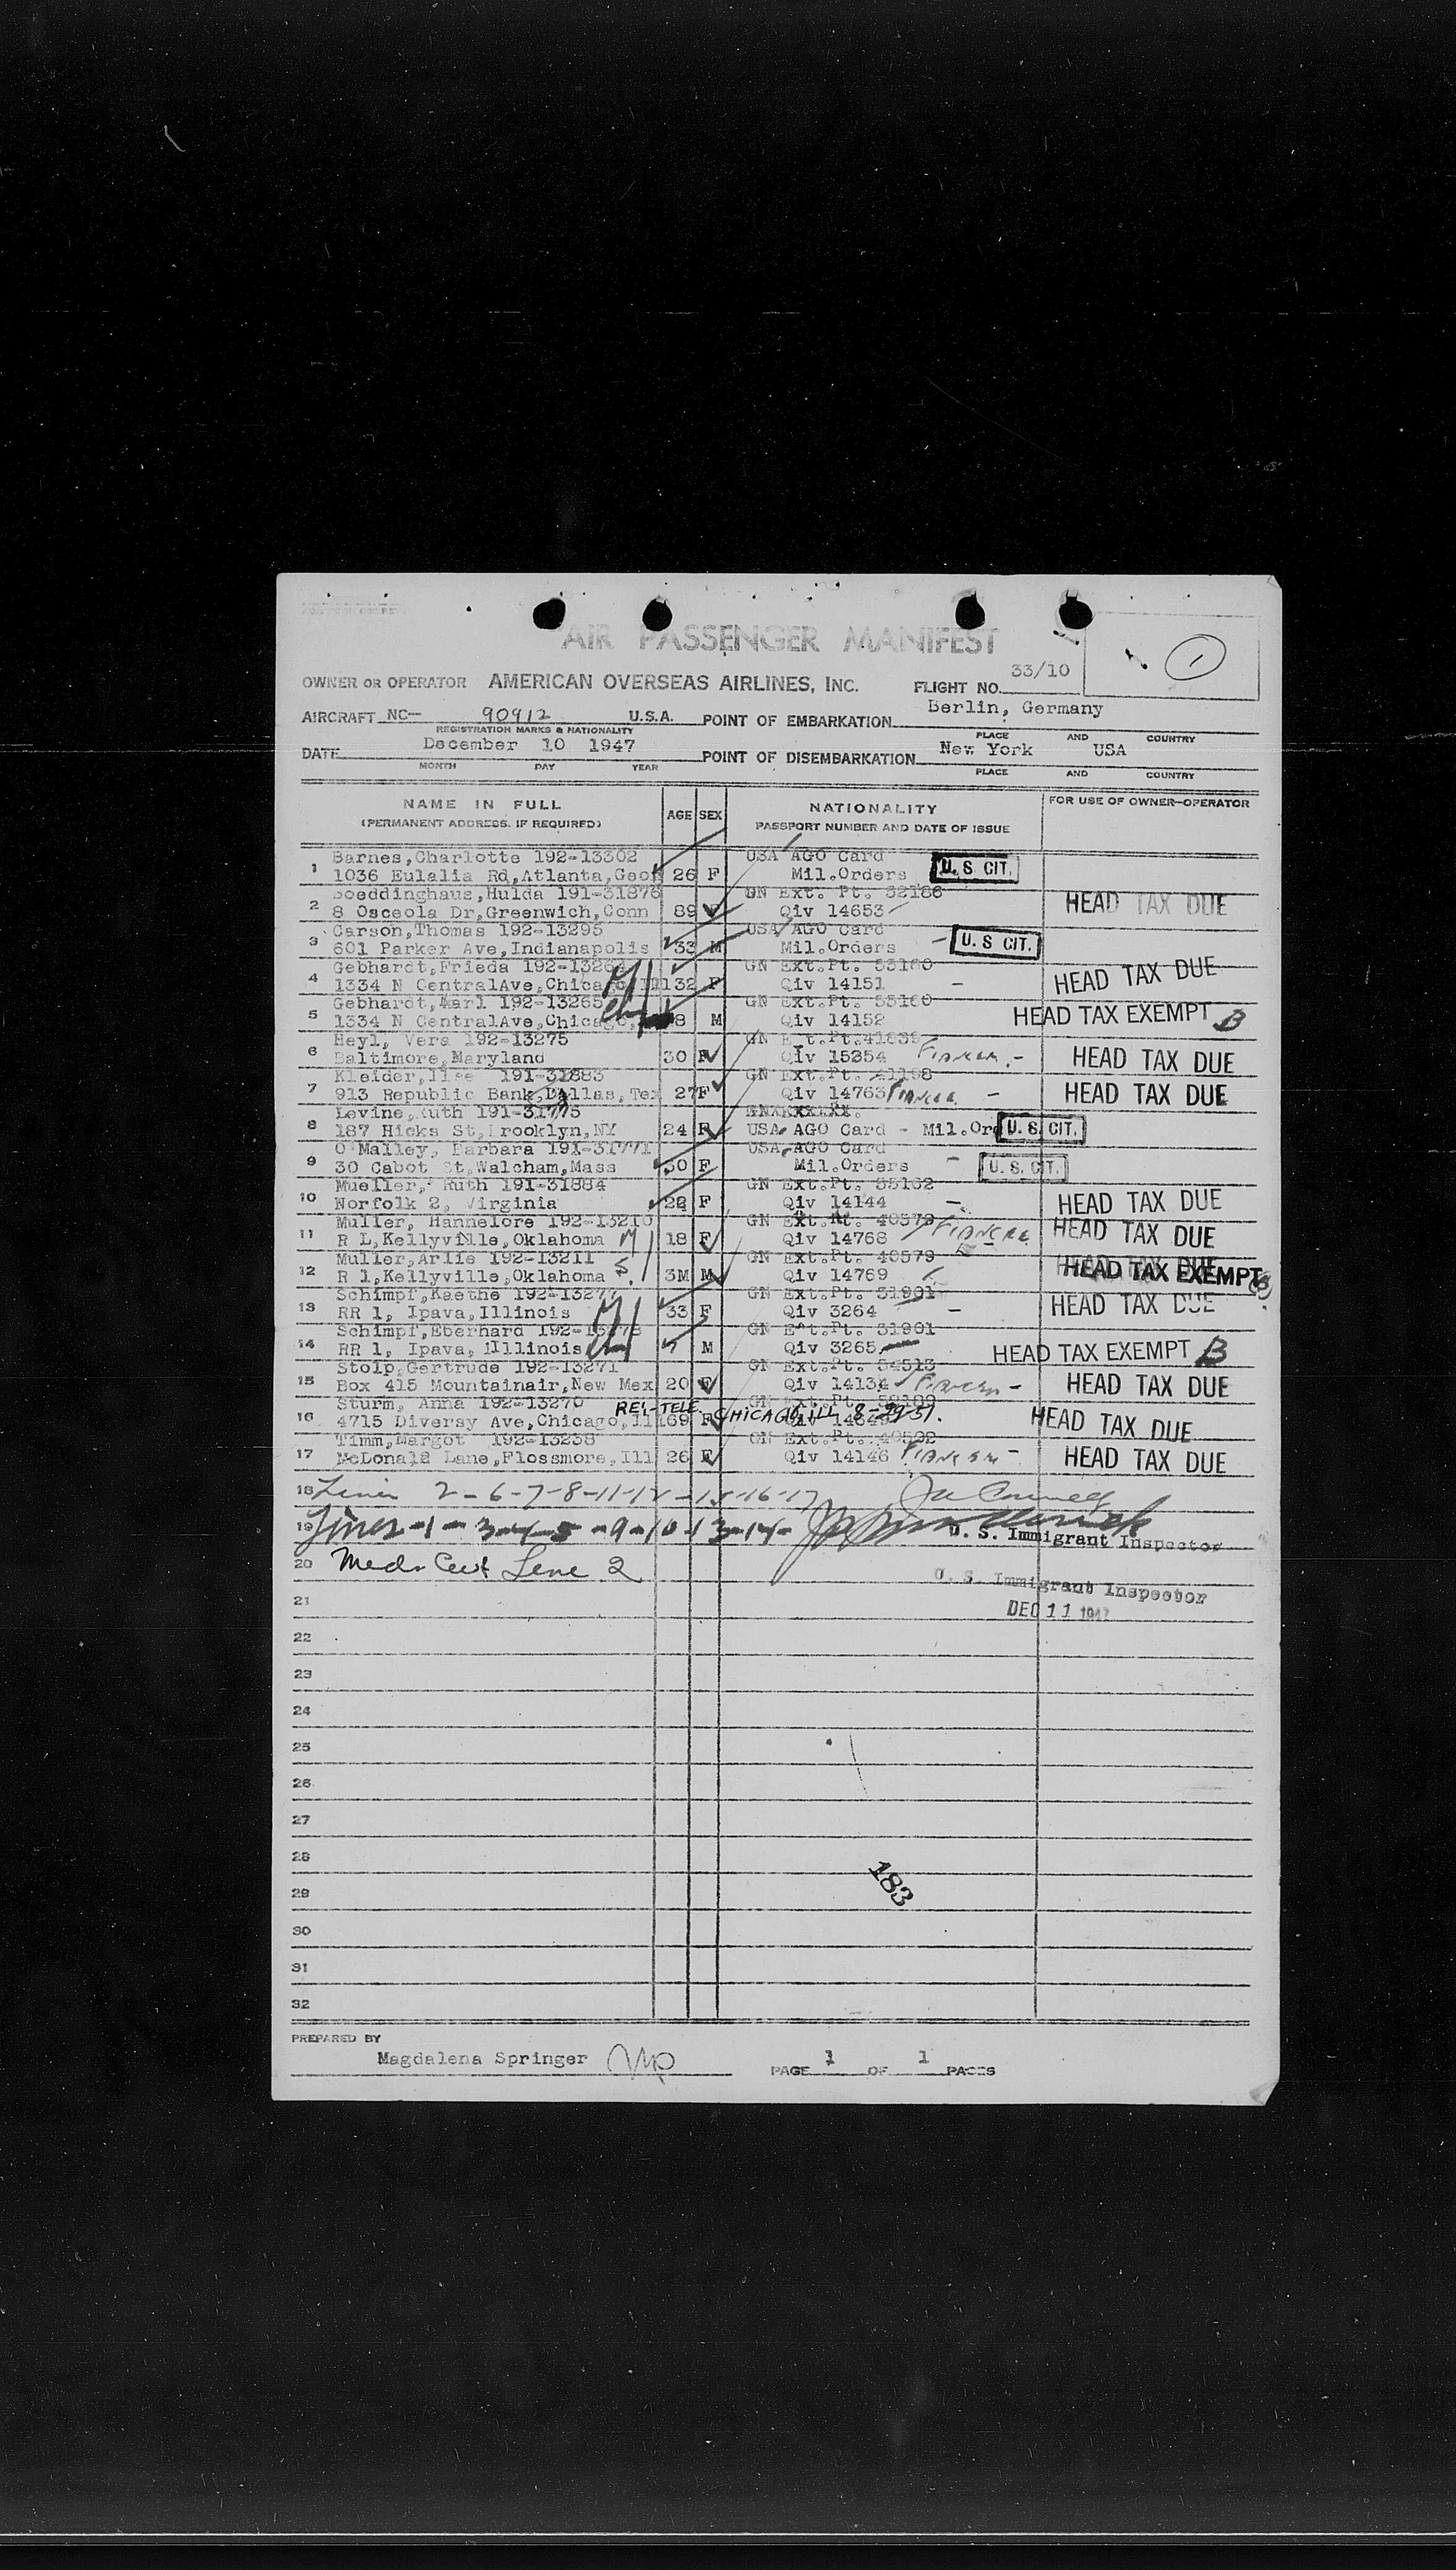 AIR PASSENGER MANIFEST
1
33/10
OWNER OR OPERATOR AMERICAN OVERSEAS AIRLINES, INC. FLIGHT NO.
AIRCRAFT NC— 90912 U.S.A. POINT OF EMBARKATION Berlin, Germany
REGISTRATION MARKS & NATIONALITY PLACE AND COUNTRY
DATE December 10 1947 POINT OF DISEMBARKATION New York USA
MONTH DAY YEAR PLACE AND COUNTRY
NAME IN FULL AGE SEX NATIONALITY FOR USE OF OWNER-OPERATOR
(PERMANENT ADDRESS, IF REQUIRED) PASSPORT NUMBER AND DATE OF ISSUE
Barnes,Charlotte 192-13302 USA AGO Card
1 1036 Eulalia Rd,Atlanta,Geor 26 F Mil.Orders U. S CIT.
Boeddinghaus,Hulda 191-31876 GN Ext. Pt. 52166
2 8 Osceola Dr,Greenwich,Conn 89 F Qiv 14653 HEAD TAX DUE
Carson,Thomas 192-13295 USA AGO Card
3 601 Parker Ave,Indianapolis 33 M Mil.Orders U. S CIT.
Gebhardt,Frieda GN Ext.Pt. 53160
4 1334 N CentralAve,Chicago,Ill 32 F Qiv 14151 HEAD TAX DUE
Gebhardt,Karl 192-13265 GN Ext.Pt. 53160
5 1334 N CentralAve,Chicago, 8 M Qiv 14152 HEAD TAX EXEMPT B
Heyl, Vera 192-13275 GN
6 Baltimore,Maryland 30 F Qiv 15354 Fiancee - HEAD TAX DUE
Kleider,Ilse 191-31883 GN Ext.Pt. 41198
7 913 Republic Bank,Dallas,Tex 27 F Qiv 14763 Fiancee - HEAD TAX DUE
Levine,Ruth 191-31775
8 187 Hicks St,Brooklyn,NY 24 F USA AGO Card - Mil.Ord U. S. CIT.
O'Malley, Barbara 191-31771 USA AGO Card
9 30 Cabot St,Walcham,Mass 30 F Mil.Orders - U. S. CIT.
Mueller, Ruth 191-31884 GN Ext.Pt. 55162
10 Norfolk 2, Virginia 28 F Qiv 14144 - HEAD TAX DUE
Muller, Hannelore 192-13210 GN Ext.Pt. 40579
11 R L,Kellyville,Oklahoma M 18 F Qiv 14768 Fiancee HEAD TAX DUE
Muller,Arlie 192-13211 GN Ext.Pt. 40579
12 R 1,Kellyville,Oklahoma S 3M M Qiv 14769 HEAD TAX EXEMPT B
Schimpf,Kaethe 192-13277 GN Ext.Pt. 31901
13 RR 1, Ipava,Illinois 33 F Qiv 3264 - HEAD TAX DUE
Schimpf,Eberhard GN Ext.Pt. 31901
14 RR 1, Ipava, Illinois 7 M Qiv 3265 HEAD TAX EXEMPT B
Stolp,Gertrude 192-13271 GN Ext.Pt. 54513
15 Box 415 Mountainair,New Mex 20 F Qiv 14134 Fiancee - HEAD TAX DUE
Sturm, Anna 192-13270 GN Ext.Pt.
REI-TELE. CHICAGO, ILL 8-29-51.
16 4715 Diversy Ave,Chicago,Ill 69 F Qiv HEAD TAX DUE
Timm,Margot 192-13238 GN Ext.Pt.
17 McDonald Lane,Flossmore,Ill 26 F Qiv 14146 Fiancee - HEAD TAX DUE
18 Lines 2-6-7-8-11-12-15-16-17
19 Lines-1-3-4-5-9-10-13-14-
U. S. Immigrant Inspector
20 Med. Cert Line 2
U. S. Immigrant Inspector
21 DEC 11 1947
22
23
24
25
26
27
28
183
29
30
31
32
PREPARED BY
Magdalena Springer PAGE 1 OF 1 PAGES